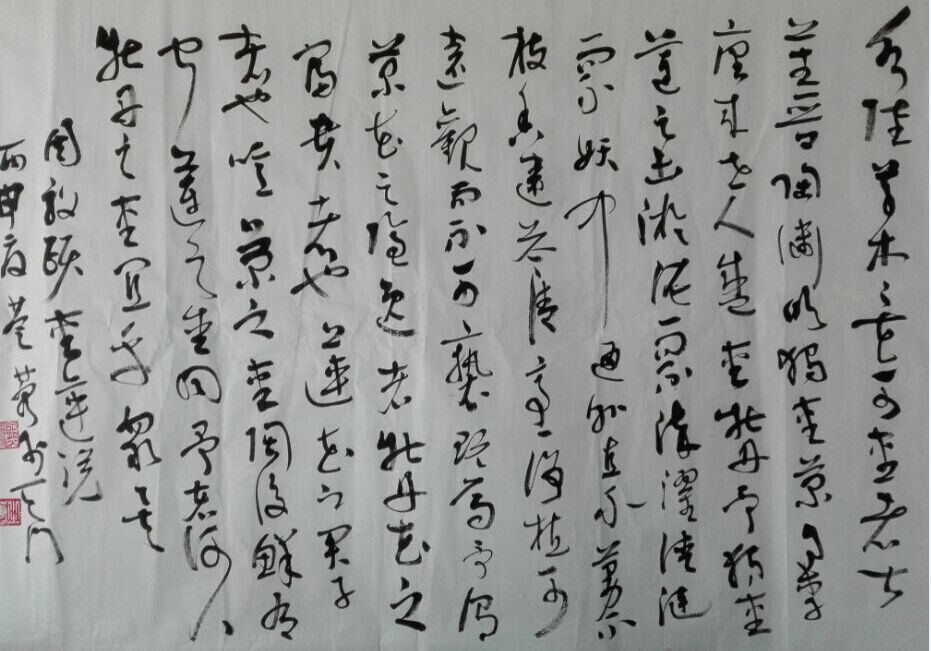 水陸草木之花可愛者甚
蕃晉陶淵明獨愛菊自李
唐來世人盛愛牡丹予獨愛
蓮之出淤泥而不染濯清漣
而不妖中通外直不蔓不
枝香遠益清亭亭淨植可
遠觀而不可褻玩焉予謂
菊花之隱逸者牡丹花之
富貴者也蓮花之君子
者也噫菊之愛陶後鮮有
聞蓮之愛同予者何人
牡丹之愛宜乎眾矣
周敦頤愛蓮說
丙申夏 書于天門